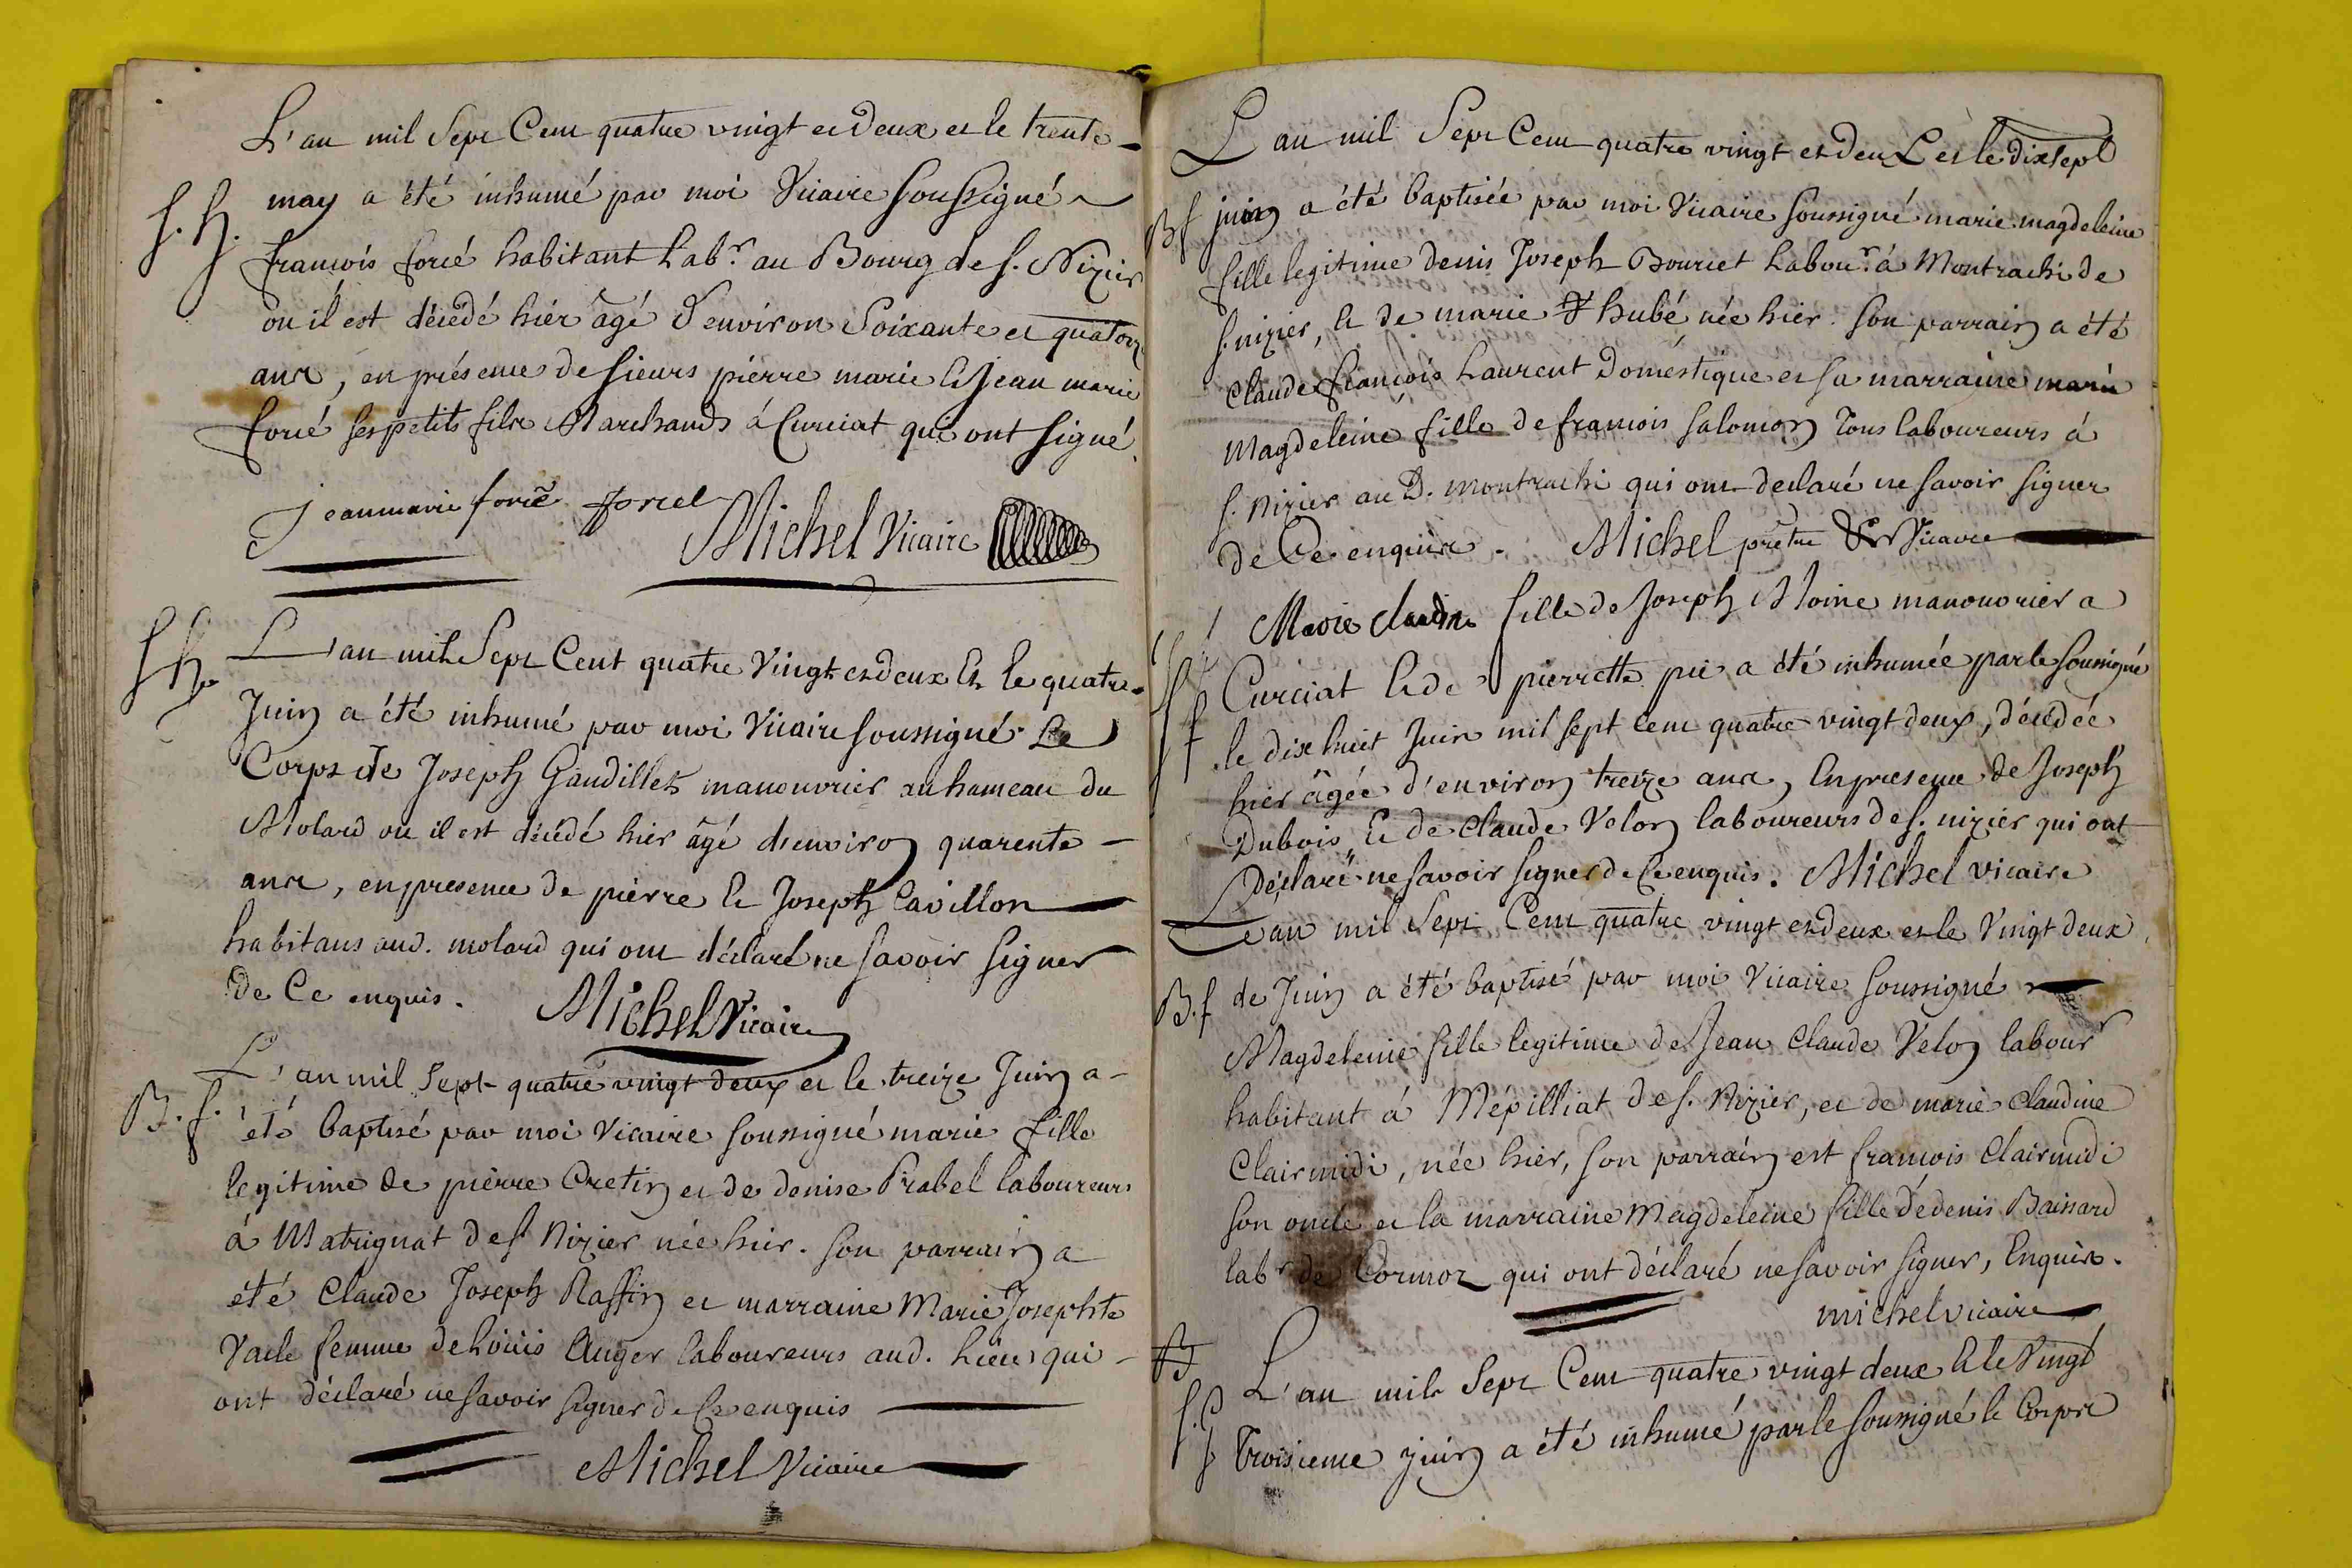 L'an mil Sept Cent quatre vingt et deux et le trente
S. h. may a été inhumé par moi Vicaire soussigné
françois forié habitant Labr. au Bourg de s. Nizier
ou il est décédé hier âgé d'environ Soixante et quatorz
ans, en présence de sieurs pierre marie et Jean marie
forié ses petits fils Marchands á Curciat qui ont signé
Jeanmarie forié foriel
Michel Vicaire
S h. L'an mil Sept Cent quatre Vingt et deux Et le quatre
Juin a été inhumé par moi Vicaire soussigné Le
Corps de Joseph Gaudillet manouvrier au hameau du
Molard ou il est décédé hier âgé d'environ quarente
ans, en presence de pierre et Joseph Cavillon
habitans aud. molard qui ont déclaré ne savoir signer
de Ce enquis. Michel Vicaire
B. f. L'an mil Sept quatre vingt deux et le treize Juin a
été baptisé par moi Vicaire soussigné marie fille
legitime de pierre Cretin et de denise Prabel laboureurs
á Matrignat de s Nizier née hier. son parrain a
été Claude Joseph Raffin et marraine Marie Josephte
Vacle femme de Louis Auger laboureurs aud. Lieu qui
ont déclaré ne savoir signer de Ce enquis
Michel Vicaire
L'an mil Sept Cent quatre vingt et deux et le dixsept
B f juin a été baptisée par moi Vicaire soussigné marie magdeleine
fille legitime denis Joseph Bouriet Labour. á Montrachi de
s. nizier, et de marie hubé née hier. son parrain a été
Claude françois Laurent Domestique et sa marraine marie
Magdeleine fille de francois salomon Tous laboureurs á
s. nizier au D. montrachi qui ont declaré ne savoir signer
de Ce enquis. Michel prêtre Vicaire
Marie Claudine fille de Joseph Moine manouvrier a
S f Curciat et de pierrette pie a été inhumée par le soussigné
le dix huit Juin mil sept cent quatre vingt deux, décédée
hier âgée d'environ treize ans, En presence de Joseph
Dubois, Et de Claude Velon laboureurs de s. nizier qui ont
Déclaré ne savoir signer de Ce enquis. Michel vicaire
L'an mil Sept Cent quatre vingt et deux et le Vingt deux
B. f de Juin a été baptisé par moi Vicaire soussigné
Magdeleine fille legitime de Jean Claude Velon labour
habitant á Mépilliat de s. Nizier, et de marie Claudine
Clairmidi, née hier, son parrain est francois Clairmidi
son oncle et la marraine Magdeleine fille de denis Baissard
labr de Cormoz qui ont déclaré ne savoir signer, Enquis.
michel vicaire
B L'an mil Sept Cent quatre vingt deux Et le Vingt
S. G troisieme juin a été inhumé par le soussigné le Corps